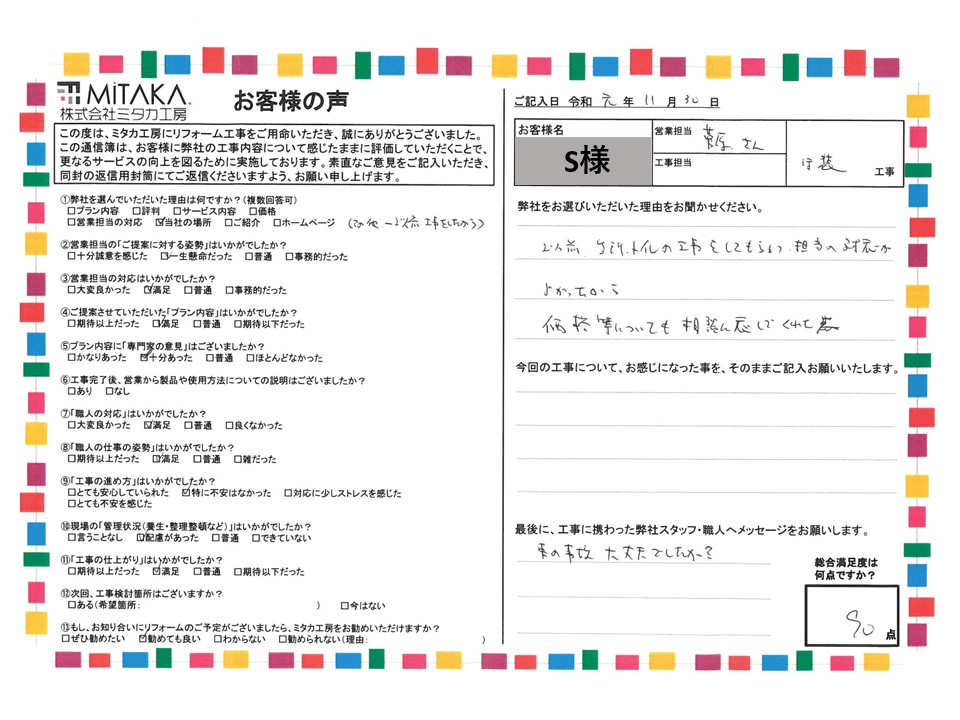 MiTAKA.
株式会社ミタカ工房
お客様の声
この度は、ミタカ工房にリフォーム工事をご用命いただき、誠にありがとうございました。
この通信簿は、お客様に弊社の工事内容について感じたままに評価していただくことで、
更なるサービスの向上を図るために実施しております。素直なご意見をご記入いただき、
同封の返信用封筒にてご返信くださいますよう、お願い申し上げます。
①弊社を選んでいただいた理由は何ですか？（複数回答可）
□プラン内容 □評判 □サービス内容 □価格
□営業担当の対応 ☑当社の場所 □ご紹介 □ホームページ
②営業担当の「ご提案に対する姿勢」はいかがでしたか？
□十分誠意を感じた ☑一生懸命だった □普通 □事務的だった
③営業担当の対応はいかがでしたか？
□大変良かった ☑満足 □普通 □事務的だった
④ご提案させていただいた「プラン内容」はいかがでしたか？
□期待以上だった ☑満足 □普通 □期待以下だった
⑤プラン内容に「専門家の意見」はございましたか？
□かなりあった ☑十分あった □普通 □ほとんどなかった
⑥工事完了後、営業から製品や使用方法についての説明はございましたか？
□あり □なし
⑦「職人の対応」はいかがでしたか？
□大変良かった ☑満足 □普通 □良くなかった
⑧「職人の仕事の姿勢」はいかがでしたか？
□期待以上だった ☑満足 □普通 □雑だった
⑨「工事の進め方」はいかがでしたか？
□とても安心していられた ☑特に不安はなかった □対応に少しストレスを感じた
□とても不安を感じた
⑩現場の「管理状況（養生・整理整頓など）」はいかがでしたか？
□言うことなし ☑配慮があった □普通 □できていない
⑪「工事の仕上がり」はいかがでしたか？
□期待以上だった ☑満足 □普通 □期待以下だった
⑫次回、工事検討箇所はございますか？
□ある（希望箇所： ） □今はない
⑬もし、お知り合いにリフォームのご予定がございましたら、ミタカ工房をお勧めいただけますか？
□ぜひ勧めたい ☑勧めても良い □わからない □勧められない（理由： ）
ご記入日 令和 元 年 11 月 30 日
お客様名
S様
営業担当 さん
工事担当
工事
弊社をお選びいただいた理由をお聞かせください。
トイレの工事をしてもらい 担当の対応が
よかったから
価格等についても相談に応じてくれた
今回の工事について、お感じになった事を、そのままご記入お願いいたします。
最後に、工事に携わった弊社スタッフ・職人へメッセージをお願いします。
車の事故 大丈夫でしたか？
総合満足度は
何点ですか？
90 点